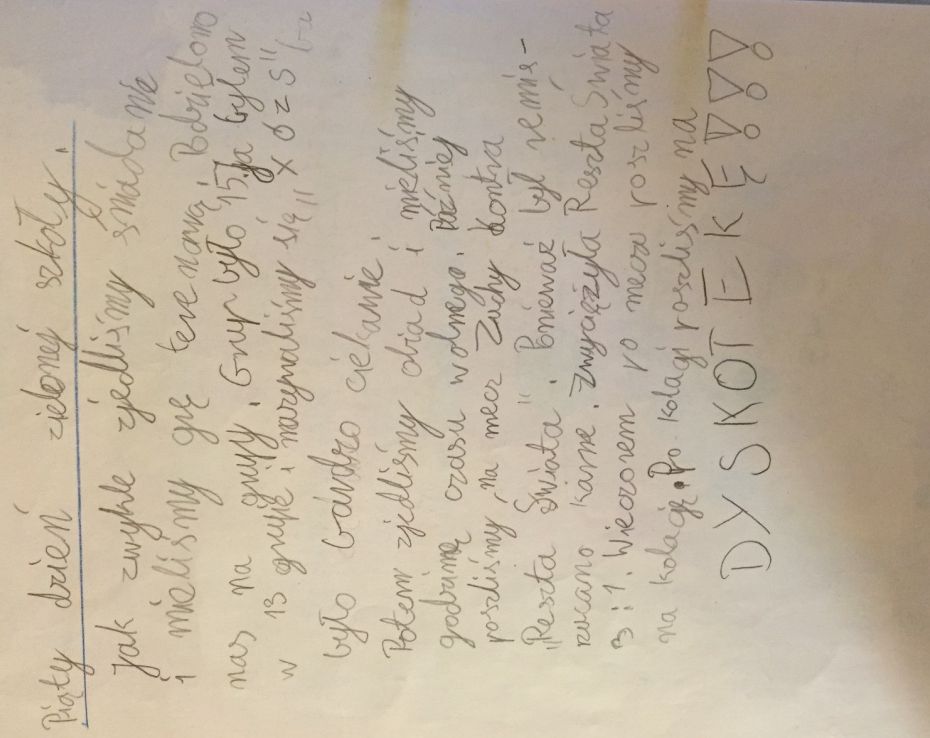 Piąty dzień zielonej szkoły.
Jak zwykle zjedliśmy śniadanie
i mieliśmy grę terenową. Podzielono
nas na grupy. Grup było 15. Ja byłem
w 13 grupie i nazywaliśmy się „
było bardzo ciekawie.
Potem zjedliśmy obiad i mieliśmy
godzinę czasu wolnego. Później
poszliśmy na mecz Zuchy kontra
„Reszta Świata". Ponieważ był remis -
rzucano karne. Zwyciężyła Reszta Świata
3:1. Wieczorem po meczu poszliśmy
na kolację. Po kolacji poszliśmy na
DYSKOTEKĘ!!!